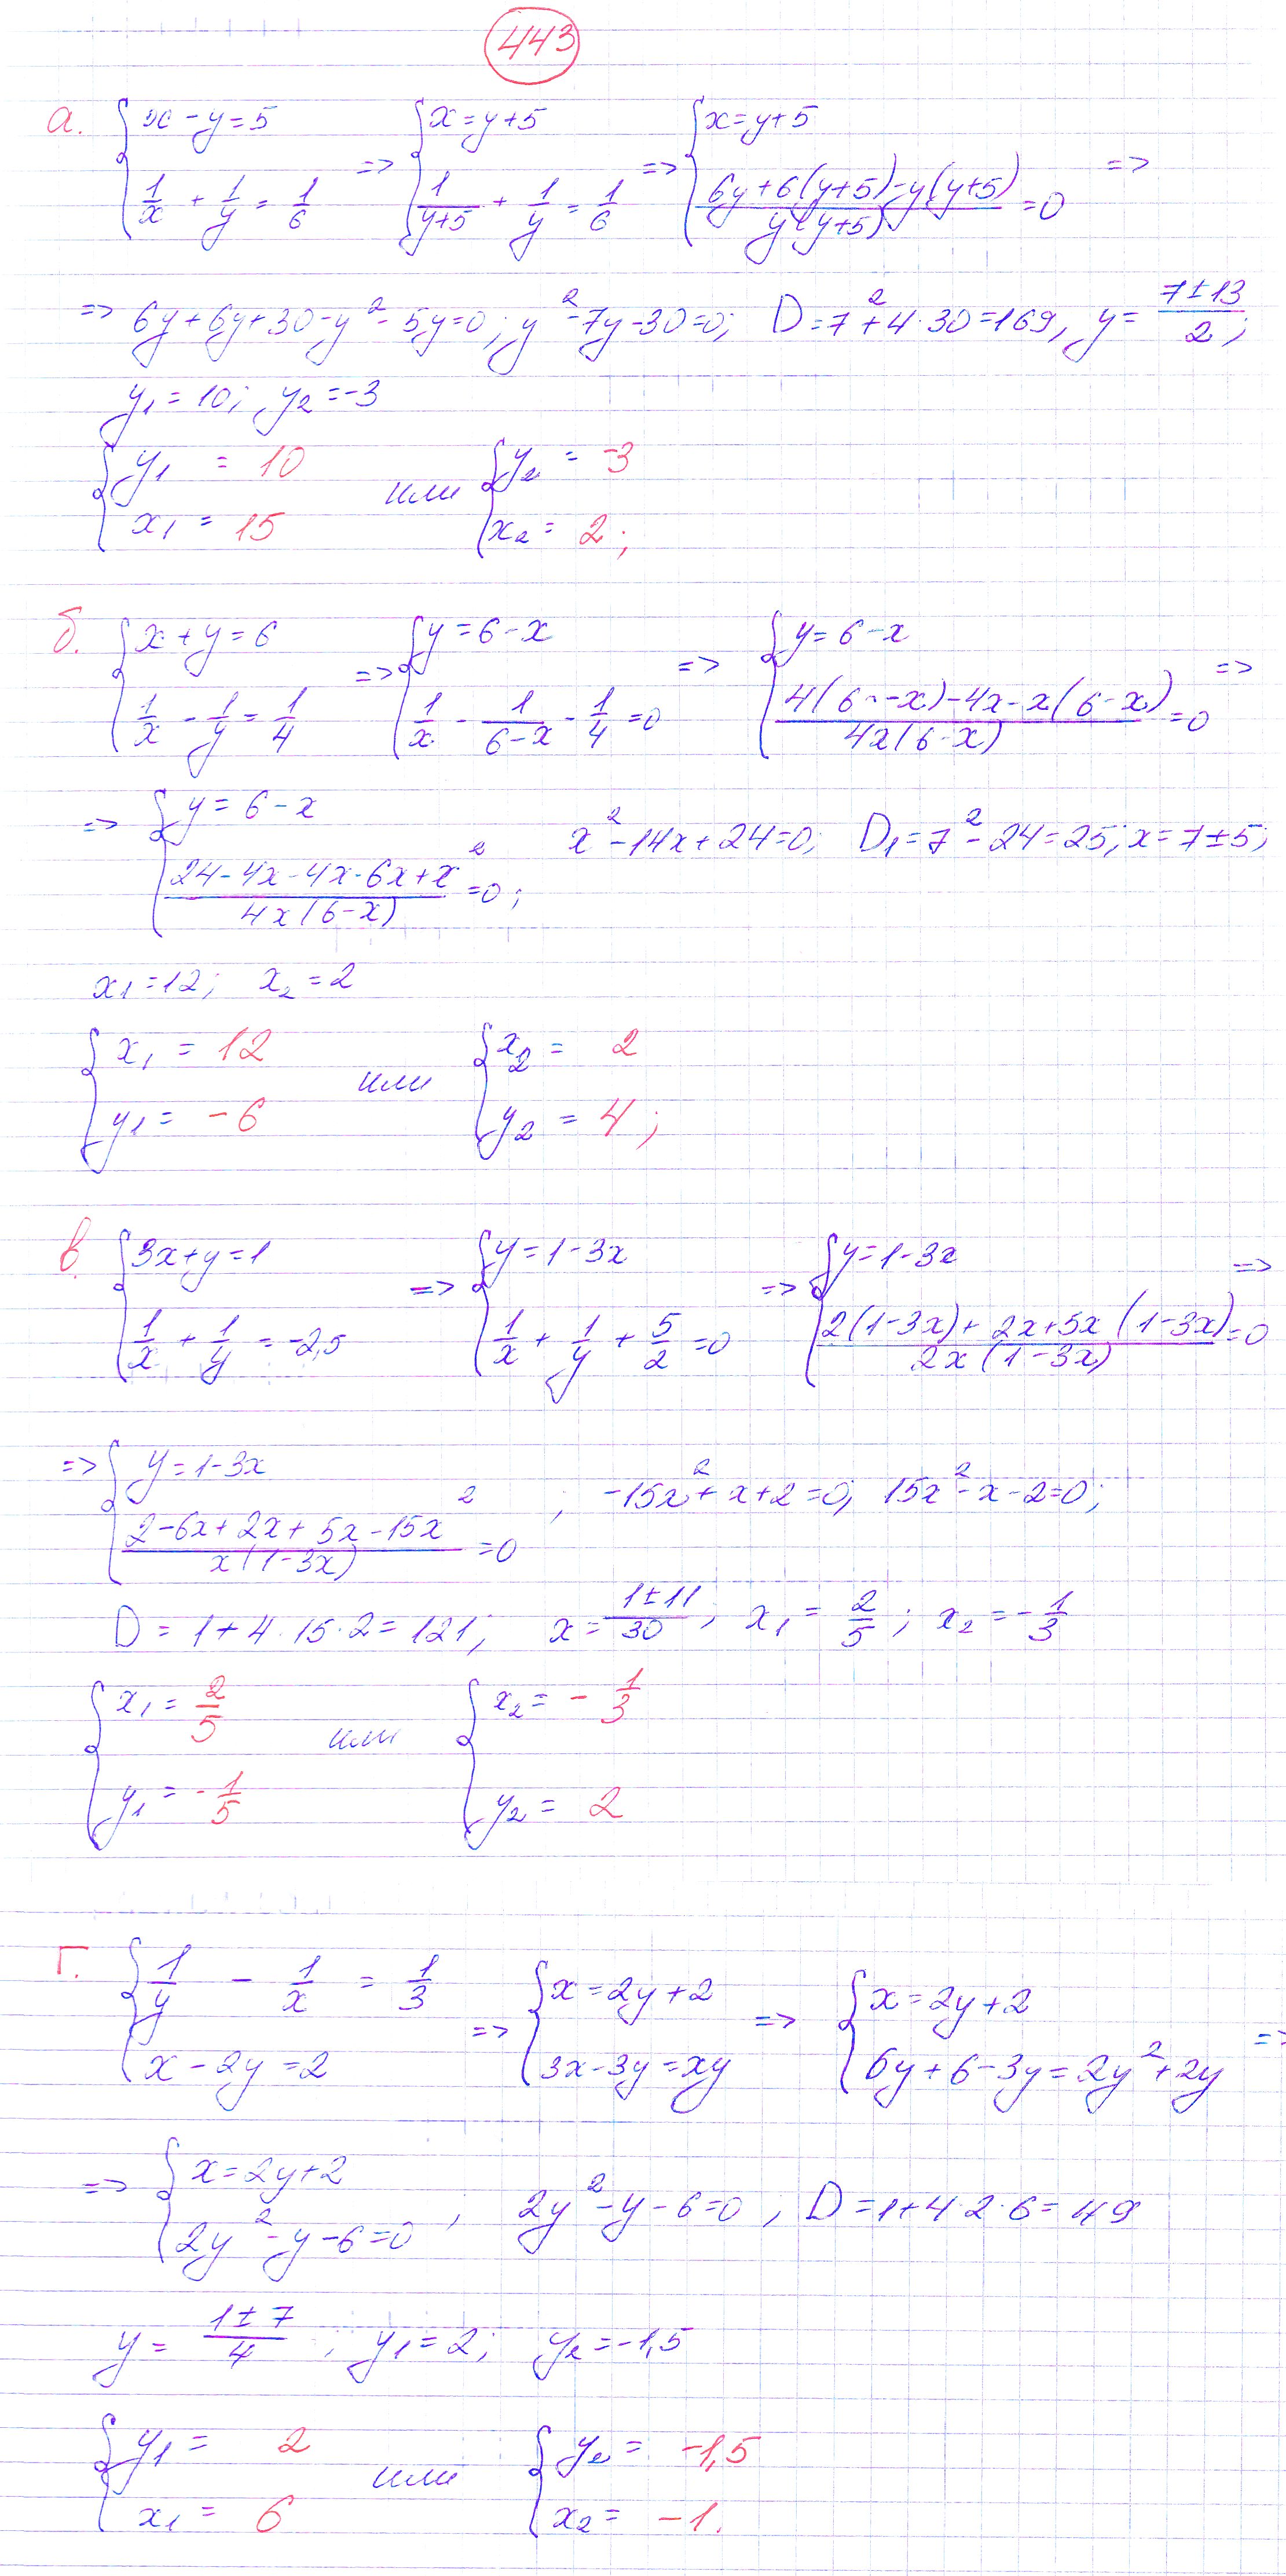 443
а. { x - y = 5 => { x = y + 5 => { x = y + 5 =>
1/x + 1/y = 1/6 1/(y+5) + 1/y = 1/6 (6y + 6(y+5) - y(y+5))/(y(y+5)) = 0
=> 6y + 6y + 30 - y² - 5y = 0; y² - 7y - 30 = 0; D = 7² + 4·30 = 169, y = (7 ± 13)/2;
y₁ = 10; y₂ = -3
{ y₁ = 10 или { y₂ = -3
x₁ = 15 x₂ = 2;
б. { x + y = 6 => { y = 6 - x => { y = 6 - x =>
1/x - 1/y = 1/4 1/x - 1/(6-x) - 1/4 = 0 (4(6-x) - 4x - x(6-x))/(4x(6-x)) = 0
=> { y = 6 - x
(24 - 4x - 4x - 6x + x²)/(4x(6-x)) = 0; x² - 14x + 24 = 0; D₁ = 7² - 24 = 25; x = 7 ± 5;
x₁ = 12; x₂ = 2
{ x₁ = 12 или { x₂ = 2
y₁ = -6 y₂ = 4;
в. { 3x + y = 1 => { y = 1 - 3x => { y = 1 - 3x =>
1/x + 1/y = -2,5 1/x + 1/y + 5/2 = 0 (2(1-3x) + 2x + 5x(1-3x))/(2x(1-3x)) = 0
=> { y = 1 - 3x
(2 - 6x + 2x + 5x - 15x²)/(x(1-3x)) = 0; -15x² + x + 2 = 0; 15x² - x - 2 = 0;
D = 1 + 4·15·2 = 121; x = (1 ± 11)/30; x₁ = 2/5; x₂ = -1/3
{ x₁ = 2/5 или { x₂ = -1/3
y₁ = -1/5 y₂ = 2
г. { 1/y - 1/x = 1/3 => { x = 2y + 2 => { x = 2y + 2 =>
x - 2y = 2 3x - 3y = xy 6y + 6 - 3y = 2y² + 2y
=> { x = 2y + 2
2y² - y - 6 = 0, 2y² - y - 6 = 0, D = 1 + 4·2·6 = 49
y = (1 ± 7)/4, y₁ = 2; y₂ = -1,5
{ y₁ = 2 или { y₂ = -1,5
x₁ = 6 x₂ = -1.